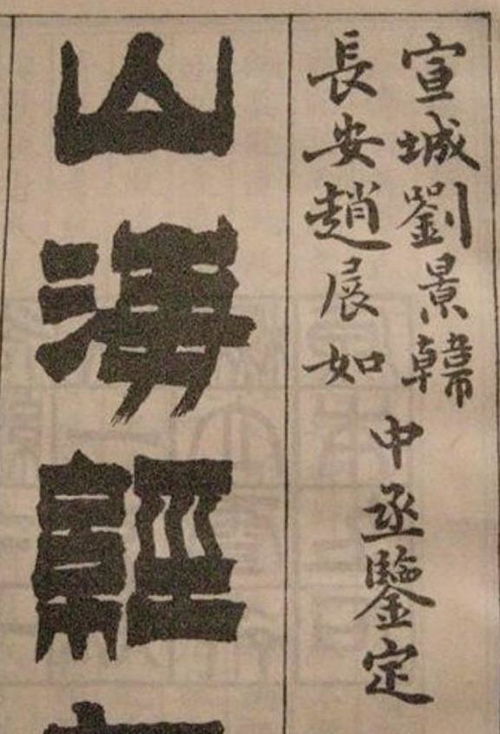 宣城劉景韓
長安趙展如
中丞鑒定
山海經